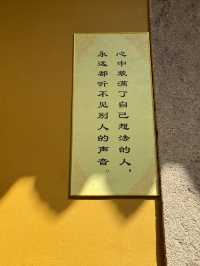 心中装满了自己想法的人，
永远都听不见别人的声音。